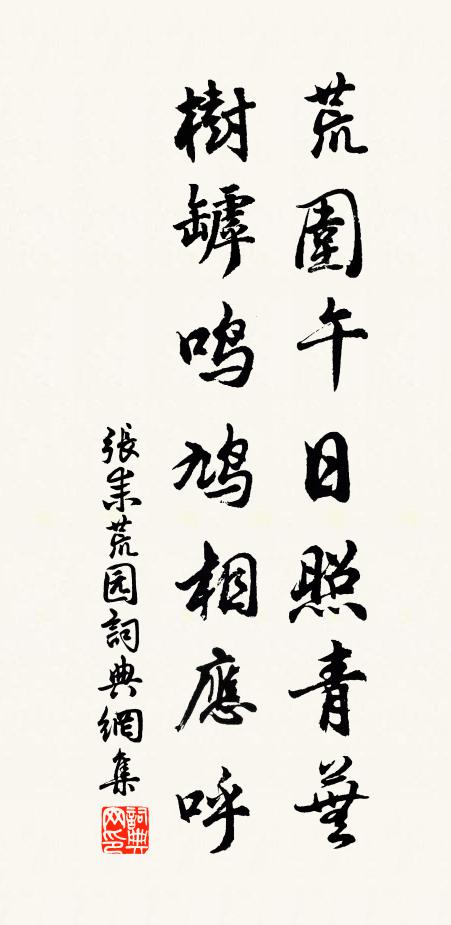 荒園午日照青蕪
樹罅鳴鳩相應呼
張耒荒园詞典網集
詞典网印